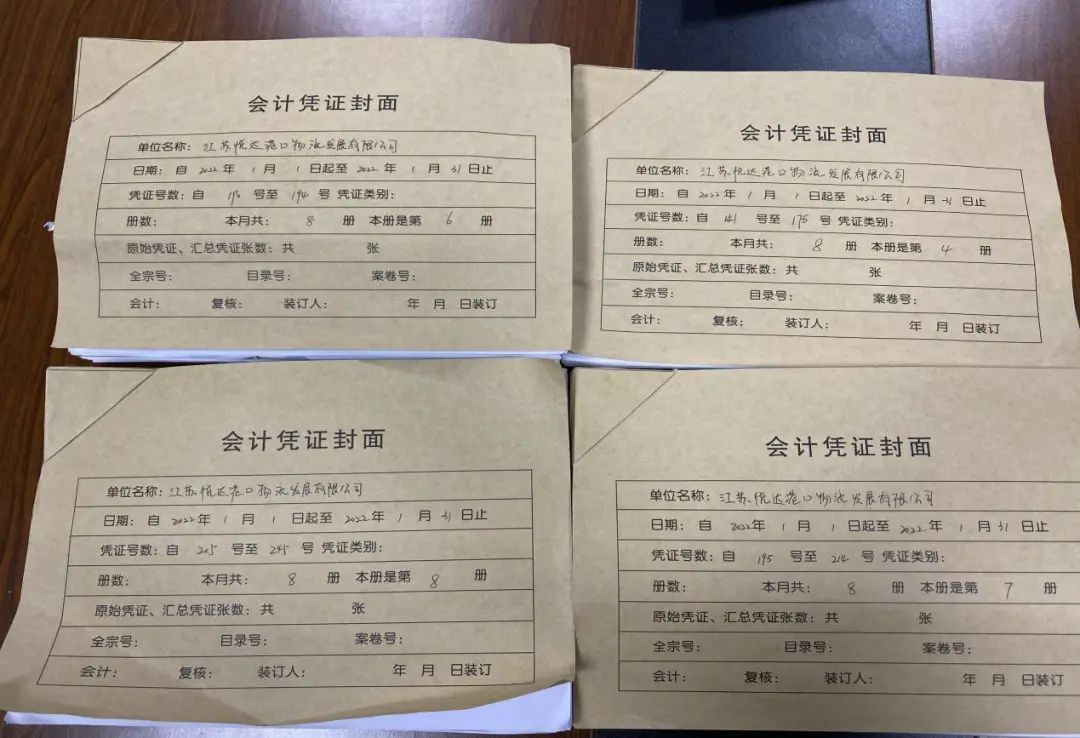 会计凭证封面
单位名称：江苏悦达港口物流发展有限公司
日期：自 2022 年 1 月 1 日起至 2022 年 1 月 31 日止
凭证号数：自 号至 194 号 凭证类别：
册数： 本月共： 8 册 本册是第 6 册
原始凭证、汇总凭证张数：共 张
全宗号： 目录号： 案卷号：
会计： 复核： 装订人： 年 月 日装订
会计凭证封面
单位名称：江苏悦达港口物流发展有限公司
日期：自 2022 年 1 月 1 日起至 2022 年 1 月 31 日止
凭证号数：自 141 号至 175 号 凭证类别：
册数： 本月共： 8 册 本册是第 4 册
原始凭证、汇总凭证张数：共 张
全宗号： 目录号： 案卷号：
会计： 复核： 装订人： 年 月 日装订
会计凭证封面
单位名称：江苏悦达港口物流发展有限公司
日期：自 2022 年 1 月 1 日起至 2022 年 1 月 31 日止
凭证号数：自 215 号至 245 号 凭证类别：
册数： 本月共： 8 册 本册是第 8 册
原始凭证、汇总凭证张数：共 张
全宗号： 目录号： 案卷号：
会计： 复核： 装订人： 年 月 日装订
会计凭证封面
单位名称：江苏悦达港口物流发展有限公司
日期：自 2022 年 1 月 1 日起至 2022 年 1 月 31 日止
凭证号数：自 195 号至 214 号 凭证类别：
册数： 本月共： 8 册 本册是第 7 册
原始凭证、汇总凭证张数：共 张
全宗号： 目录号： 案卷号：
会计： 复核： 装订人： 年 月 日装订